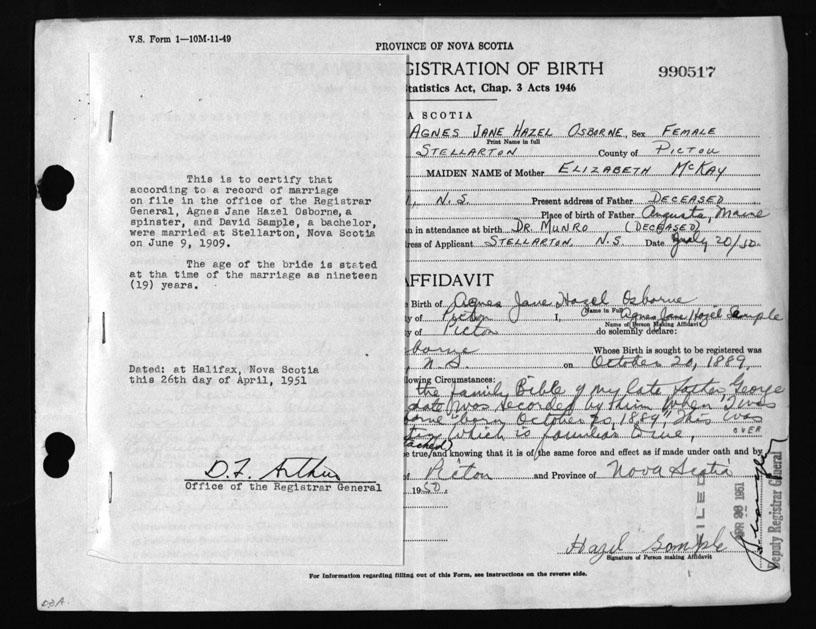 V.S. Form 1—10M-11-49
PROVINCE OF NOVA SCOTIA
GISTRATION OF BIRTH
990517
tatistics Act, Chap. 3 Acts 1946
A SCOTIA
AGNES JANE HAZEL OSBORNE, Sex FEMALE
Print Name in full
STELLARTON County of PICTOU
MAIDEN NAME of Mother ELIZABETH McKAY
N.S. Present address of Father DECEASED
Place of birth of Father Augusta, Maine
n in attendance at birth DR. MUNRO (DECEASED)
ress of Applicant STELLARTON, N.S. Date July 20/50
This is to certify that
according to a record of marriage
on file in the office of the Registrar
General, Agnes Jane Hazel Osborne, a
spinster, and David Sample, a bachelor,
were married at Stellarton, Nova Scotia
on June 9, 1909.
The age of the bride is stated
at tha time of the marriage as nineteen
(19) years.
Dated: at Halifax, Nova Scotia
this 26th day of April, 1951
D.F. Arthur
Office of the Registrar General
AFFIDAVIT
e Birth of Agnes Jane Hazel Osborne
(Name in Full)
ty of Pictou I, Agnes Jane Hazel Sample
Name of Person Making Affidavit
ty of Pictou do solemnly declare:
borne Whose Birth is sought to be registered was
N.S. on October 20, 1889
llowing Circumstances:
the family Bible of my late father George
date was recorded by him when I was
borne "born October 20, 1889," This was
which is true,
OVER
ached)
e true, and knowing that it is of the same force and effect as if made under oath and by
of Pictou and Province of Nova Scotia
1950.
FILED
APR 28 1951
Deputy Registrar General
Hazel Sample
Signature of Person making Affidavit
For Information regarding filling out of this Form, see instructions on the reverse side.